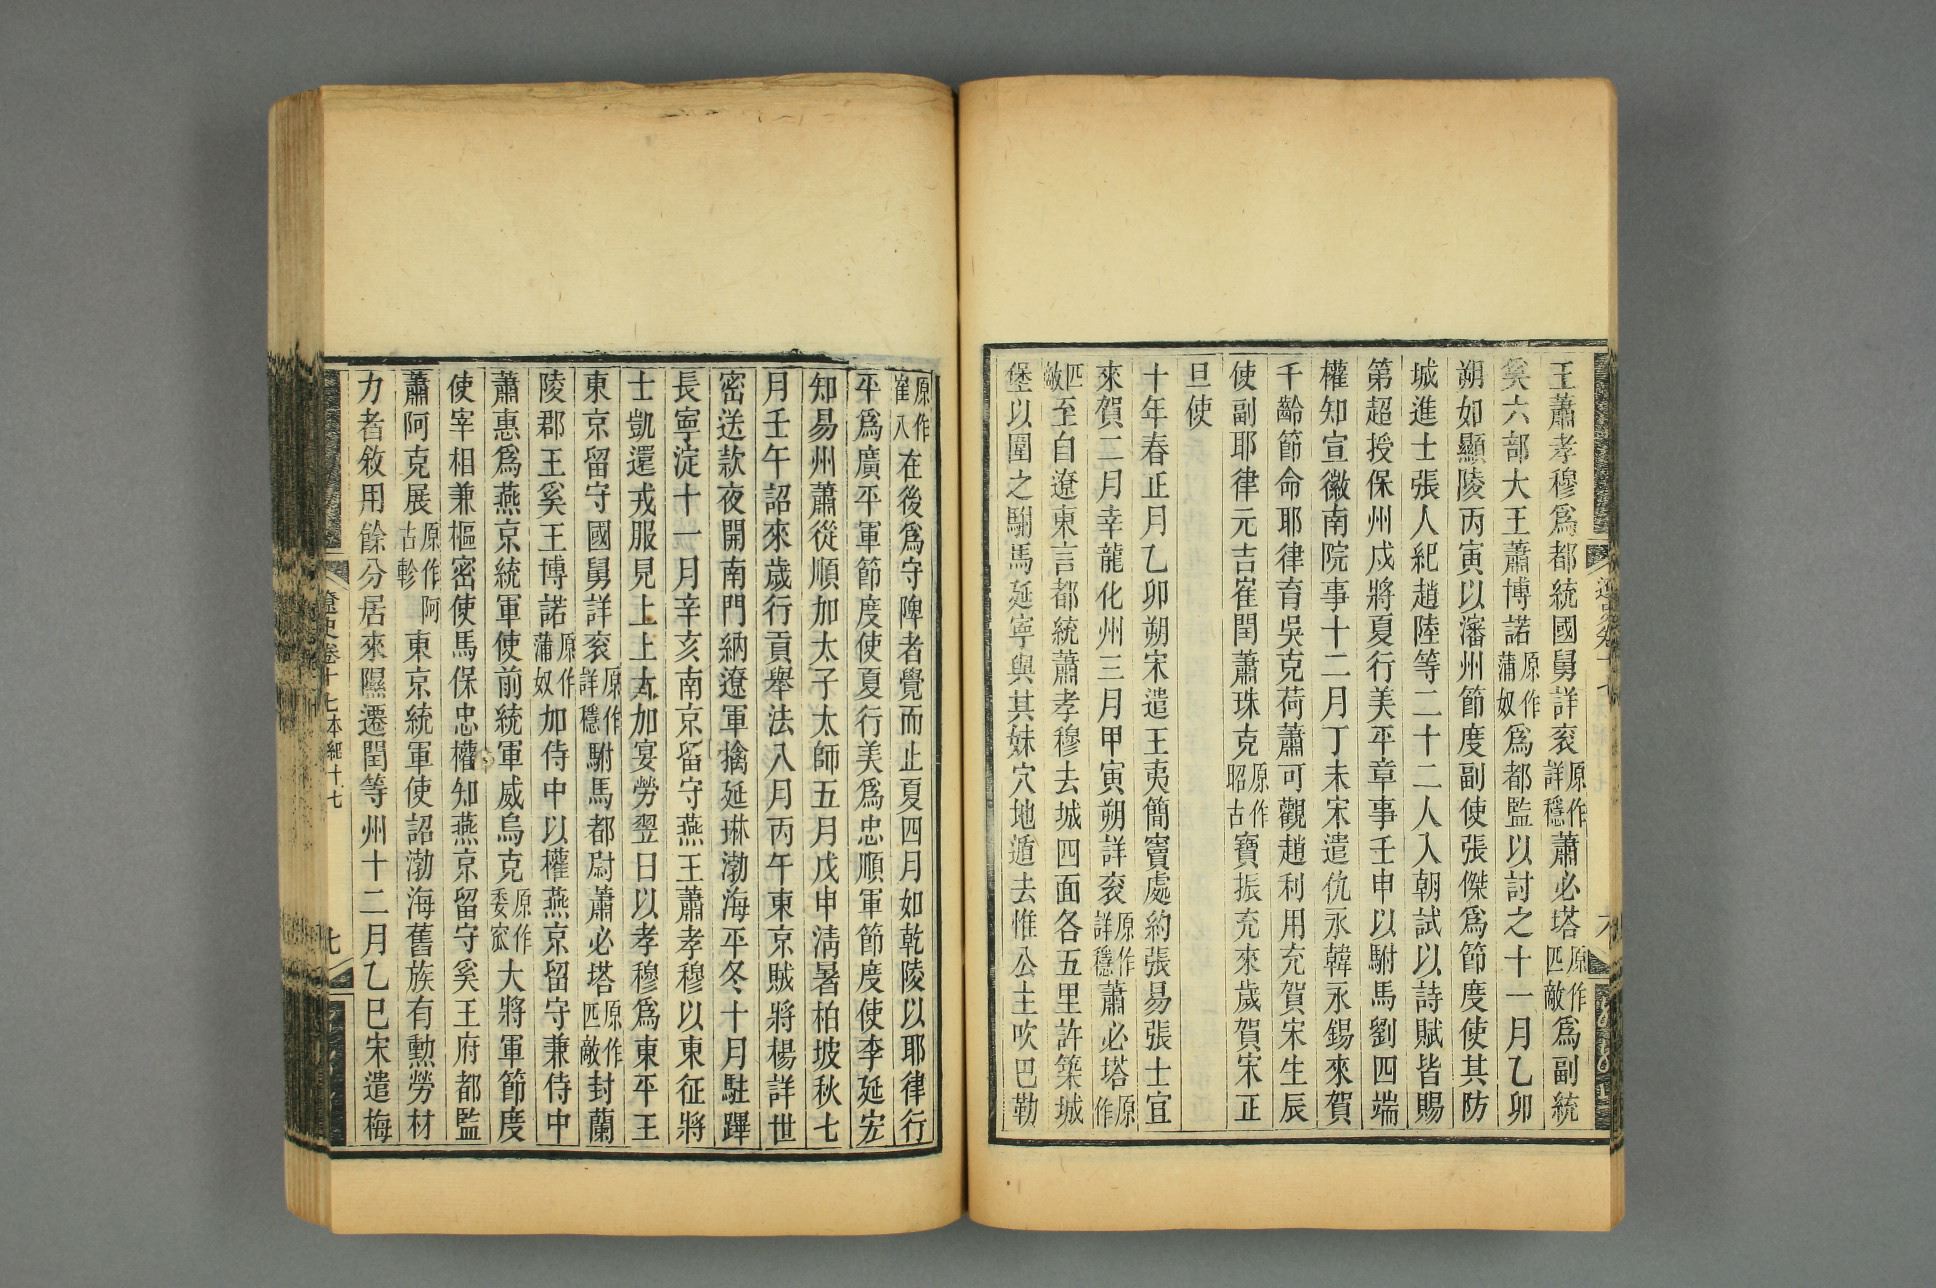 王蕭孝穆爲都統國舅詳袞原作詳穩蕭必塔原作匹敵爲副統
奚六部大王蕭博諾原作蒲奴爲都監以討之十一月乙卯
朔如顯陵丙寅以瀋州節度副使張傑爲節度使其防
城進士張人紀趙睦等二十二人入朝試以詩賦皆賜
第超授保州戍將夏行美平章事壬申以駙馬劉四端
權知宣徽南院事十二月丁未宋遣仇永韓永錫來賀
千齡節命耶律育吳克荷蕭可觀趙利用充賀宋生辰
使副耶律元吉崔閏蕭珠克原作昭古寶振充來歲賀宋正
旦使
十年春正月乙卯朔宋遣王夷簡竇處約張易張士宜
來賀二月幸龍化州三月甲寅朔詳袞原作詳穩蕭必塔原作
匹敵至自遼東言都統蕭孝穆去城四面各五里許築城
堡以圍之駙馬延寧與其妹穴地遁去惟公主吹巴勒
原作崔八在後爲守陴者覺而止夏四月如乾陵以耶律行
平爲廣平軍節度使夏行美爲忠順軍節度使李延宏
知易州蕭從順加太子太師五月戊申淸暑柏坡秋七
月壬午詔來歲行貢舉法八月丙午東京賊將楊詳世
密送款夜開南門納遼軍擒延琳渤海平冬十月駐蹕
長寧淀十一月辛亥南京留守燕王蕭孝穆以東征將
士凱還戎服見上上大加宴勞翌日以孝穆爲東平王
東京留守國舅詳袞原作詳穩駙馬都尉蕭必塔原作匹敵封蘭
陵郡王奚王博諾原作蒲奴加侍中以權燕京留守兼侍中
蕭惠爲燕京統軍使前統軍威烏克原作委窊大將軍節度
使宰相兼樞密使馬保忠權知燕京留守奚王府都監
蕭阿克展原作阿古軫東京統軍使詔渤海舊族有勳勞材
力者敘用餘分居來隰遷閏等州十二月乙巳宋遣梅
遼史卷十七本紀十七
七